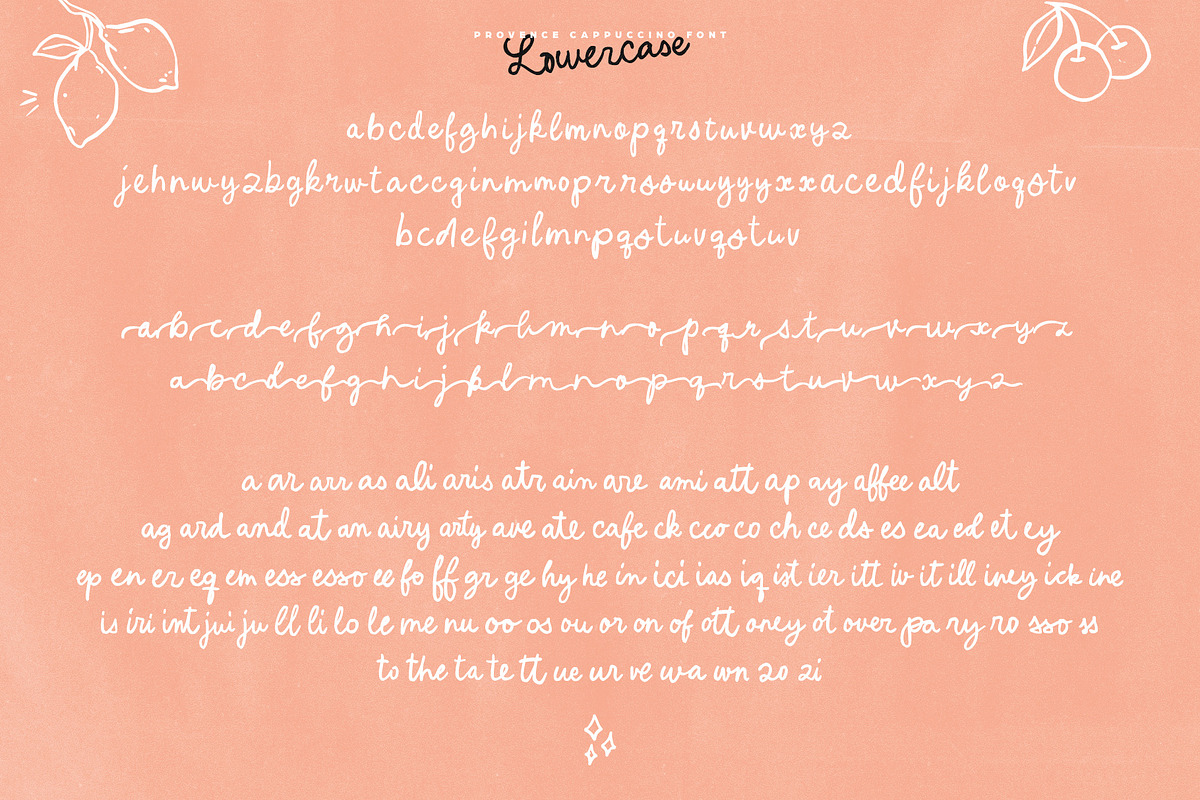 PROVENCE CAPPUCCINO FONT
Lowercase
abcdefghijklmnopqrstuvwxyz
jehnwyzbgkrwtaccginmmoprrssuuyyyxxacedfijkloqstv
bcdefgilmnpqstuvqstuv
a b c d e f g h i j k l m n o p q r s t u v w x y z
a b c d e f g h i j k l m n o p q r s t u v w x y z
a ar arr as ali aris atr ain are ami att ap ay affee alt
ag ard and at an airy arty ave ate cafe ck cco co ch ce ds es ea ed et ey
ep en er eq em ess esso ee fo ff gr ge hy he in ici ias iq ist ier itt iv it ill iney ick ine
is iri int jui ju ll li lo le me nu oo os ou or on of ott oney ot over pa ry ro sso ss
to the ta te tt ue ur ve wa wn zo zi